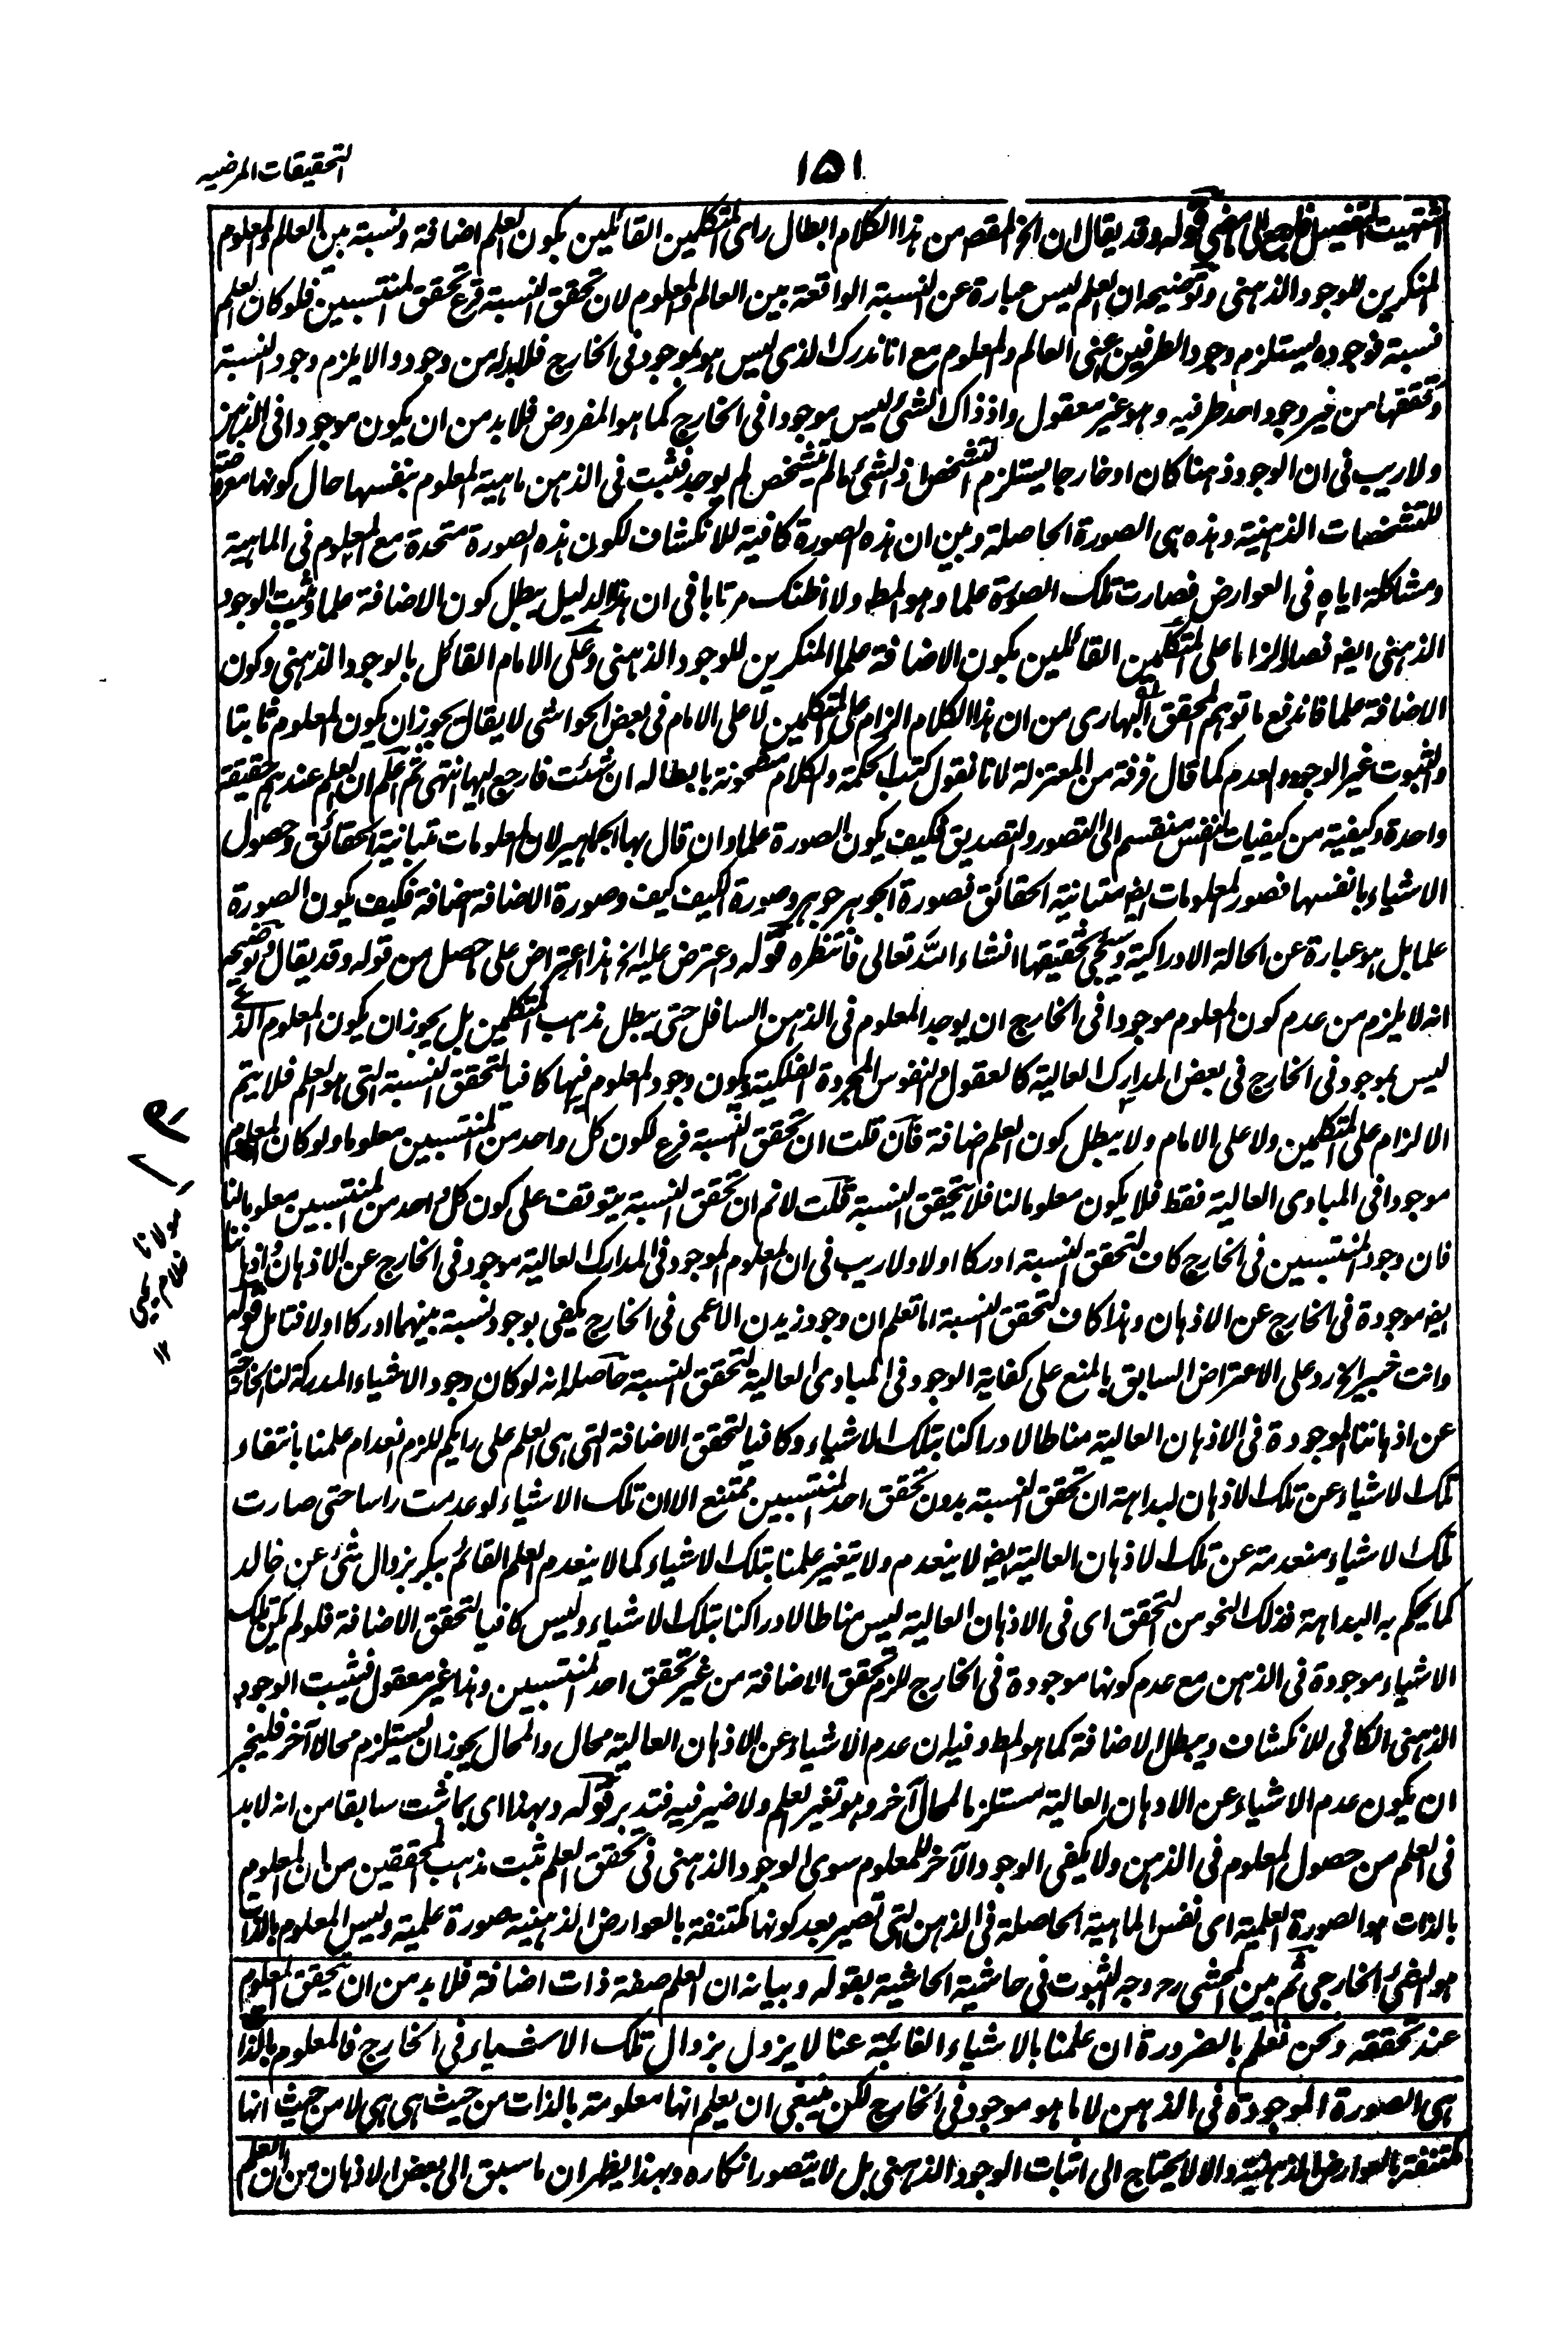 التحقيقات المرضيه
١٥١
اشتهيت التفصيل فارجع الى ما مضى قوله وقد يقال ان الخ المقصد من هذا الكلام ابطال راى المتكلمين القائلين بكون العلم اضافة ونسبة بين العالم والمعلوم
المنكرين للوجود الذهنى وتوضيحه ان العلم ليس عبارة عن النسبة الواقعة بين العالم والمعلوم لان تحقق النسبة فرع تحقق المنتسبين فلو كان العلم
نسبة فوجوده يستلزم وجود الطرفين اعنى العالم والمعلوم مع انا ندرك الذى ليس هو بموجود فى الخارج فلا بد له من وجود والا يلزم وجود النسبة
وتحققها من غير وجود احد طرفيه وهو غير معقول واذ ذاك الشئ ليس موجودا فى الخارج كما هو المفروض فلا بد من ان يكون موجودا فى الذهن
ولا ريب فى ان الوجود ذهنا كان او خارجا يستلزم التشخص اذ الشئ ما لم يتشخص لم يوجد فثبت فى الذهن ماهية المعلوم بنفسها حال كونها معروضة
للتشخصات الذهنية وهذه هى الصورة الحاصلة وبين ان هذه الصورة كافية للانكشاف لكون هذه الصورة متحدة مع المعلوم فى الماهية
ومشاكلة اياه فى العوارض فصارت تلك الصورة علما وهو المط ولا اظنك مرتابا فى ان هذا الدليل يبطل كون الاضافة علما ويثبت الوجود
الذهنى ايضه فصار الزاما على المتكلمين القائلين بكون الاضافة علما المنكرين للوجود الذهنى وعلى الامام القائل بالوجود الذهنى وكون
الاضافة علما فاندفع ما توهم المحقق البهارى من ان هذا الكلام الزام على المتكلمين لا على الامام فى بعض الحواشى لا يقال يجوز ان يكون المعلوم ثابتا
والثبوت غير الوجود والعدم كما قال فرقة من المعتزلة لانا نقول كتب الحكمة والكلام مشحونة بابطاله ان شئت فارجع اليها انتهى ثم اعلم ان العلم عندهم حقيقة
واحدة وكيفية من كيفيات النفس منقسم الى التصور والتصديق فكيف يكون الصورة علما وان قال بها الجماهير لان المعلومات متبانية الحقائق وحصول
الاشياء بانفسها فصور المعلومات ايضه متبانية الحقائق فصورة الجوهر جوهر وصورة الكيف كيف وصورة الاضافة اضافة فكيف يكون الصورة
علما بل هو عبارة عن الحالة الادراكية وسيجئ تحقيقها انشاء الله تعالى فانتظره قوله واعترض عليه الخ هذا اعتراض على حاصل من قوله وقد يقال وتوضيحه
انه لا يلزم من عدم كون المعلوم موجودا فى الخارج ان يوجد المعلوم فى الذهن السافل حتى يبطل مذهب المتكلمين بل يجوز ان يكون المعلوم الذى
ليس بموجود فى الخارج فى بعض المدارك العالية كالعقول والنفوس المجردة الفلكية ويكون وجود المعلوم فيها كافيا لتحقق النسبة التى هو العلم فلا يتم
الالزام على المتكلمين ولا على الامام ولا يبطل كون العلم اضافة فان قلت ان تحقق النسبة فرع لكون كل واحد من المنتسبين معلوما ولو كان المعلوم
موجودا فى المبادى العالية فقط فلا يكون معلوما لنا فلا يتحقق النسبة قلت لا نم ان تحقق النسبة يتوقف على كون كل واحد من المنتسبين معلوما لنا
فان وجود المنتسبين فى الخارج كاف لتحقق النسبة ادركا اولا ولا ريب فى ان المعلوم الموجود فى المدارك العالية موجود فى الخارج عن الاذهان واذهاننا
ايضه موجودة فى الخارج عن الاذهان وهذا كاف لتحقق النسبة اما تعلم ان وجود زيد ن الاعمى فى الخارج يكفى بوجود نسبة بينهما ادركا اولا فتامل قوله
وانت خبير الخ رد على الاعتراض السابق بالمنع على كفاية الوجود فى المبادى العالية لتحقق النسبة حاصله انه لو كان وجود الاشياء المدركة لنا الخارجة
عن اذهاننا الموجودة فى الاذهان العالية مناطا لادراكنا بتلك الاشياء وكافيا لتحقق الاضافة التى هى العلم على رايكم للزم انعدام علمنا بانتفاء
تلك الاشياء عن تلك الاذهان لبداهة ان تحقق النسبة بدون تحقق احد المنتسبين ممتنع الا ان تلك الاشياء لو عدمت راسا حتى صارت
تلك الاشياء منعدمة عن تلك الاذهان العالية ايضه لا ينعدم ولا يتغير علمنا بتلك الاشياء كما لا ينعدم العلم القائم ببكر بزوال شئ عن خالد
كما يحكم به البداهة فذلك النحو من التحقق اى فى الاذهان العالية ليس مناطا لادراكنا بتلك الاشياء وليس كافيا لتحقق الاضافة فلو لم يكن تلك
الاشياء موجودة فى الذهن مع عدم كونها موجودة فى الخارج للزم تحقق الاضافة من غير تحقق احد المنتسبين وهذا غير معقول فيثبت الوجود
الذهنى الكافى للانكشاف ويبطل الاضافة كما هو المط وفيه ان عدم الاشياء عن الاذهان العالية محال والمحال يجوز ان يستلزم محالا آخر فليجز
ان يكون عدم الاشياء عن الاذهان العالية مستلزما لمحال آخر وهو تغير العلم ولا ضير فيه فتدبر قوله وبهذا اى بما ثبت سابقا من انه لا بد
فى العلم من حصول المعلوم فى الذهن ولا يكفى الوجود الآخر للمعلوم سوى الوجود الذهنى فى تحقق العلم ثبت مذهب المحققين من ان المعلوم
بالذات هو الصورة العلمية اى نفس الماهية الحاصلة فى الذهن التى تصير بعد كونها مكتنفة بالعوارض الذهنية صورة علمية وليس المعلوم بالذات
هو الشئ الخارجى ثم بين المحشى رح وجه الثبوت فى حاشية الحاشية بقوله وبيانه ان العلم صفة ذات اضافة فلا بد من ان يتحقق المعلوم
عند تحققه ونحن نعلم بالضرورة ان علمنا بالاشياء الغائبة عنا لا يزول بزوال تلك الاشياء فى الخارج فالمعلوم بالذات
هى الصورة الموجودة فى الذهن لا ما هو موجود فى الخارج لكن ينبغى ان يعلم انها معلومة بالذات من حيث هى هى لا من حيث انها
مكتنفة بالعوارض الذهنية والا لا يحتاج الى اثبات الوجود الذهنى بل لا يتصور انكاره وبهذا يظهر ان ما سبق الى بعض الاذهان من ان العلم
مولانا
غلام يحيى
١٢